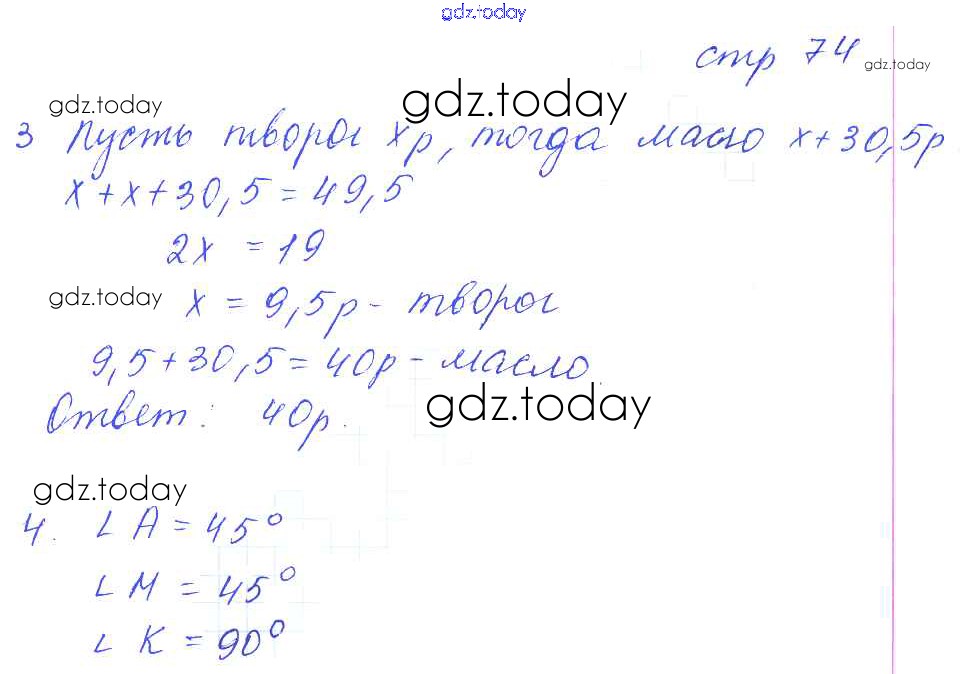 gdz.today
стр 74 gdz.today
gdz.today gdz.today
3 Пусть творог x р, тогда масло x+30,5р
x+x+30,5=49,5
2x = 19
gdz.today x = 9,5р - творог
9,5+30,5=40р - масло
gdz.today
Ответ: 40р.
gdz.today
4. ∟A = 45°
∟M = 45°
∟K = 90°